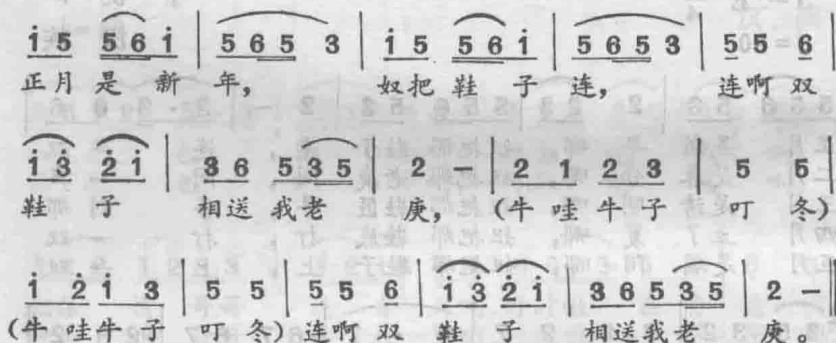 i̇ 5 5 6 i̇ | 5 6 5 3 | i̇ 5 5 6 i̇ | 5 6 5 3 | 5 5 6 |
正月 是 新 年, 奴把 鞋 子 连, 连啊 双
i̇ 3̇ 2̇ i̇ | 3 6 5 3 5 | 2 - | 2 1 2 3 | 5 5 |
鞋 子 相送 我老 庚, (牛 哇 牛 子 叮 冬)
i̇ 2̇ i̇ 3 | 5 5 | 5 5 6 | i̇ 3̇ 2̇ i̇ | 3 6 5 3 5 | 2 - ‖
(牛 哇 牛 子 叮 冬) 连啊 双 鞋 子 相送我老 庚。